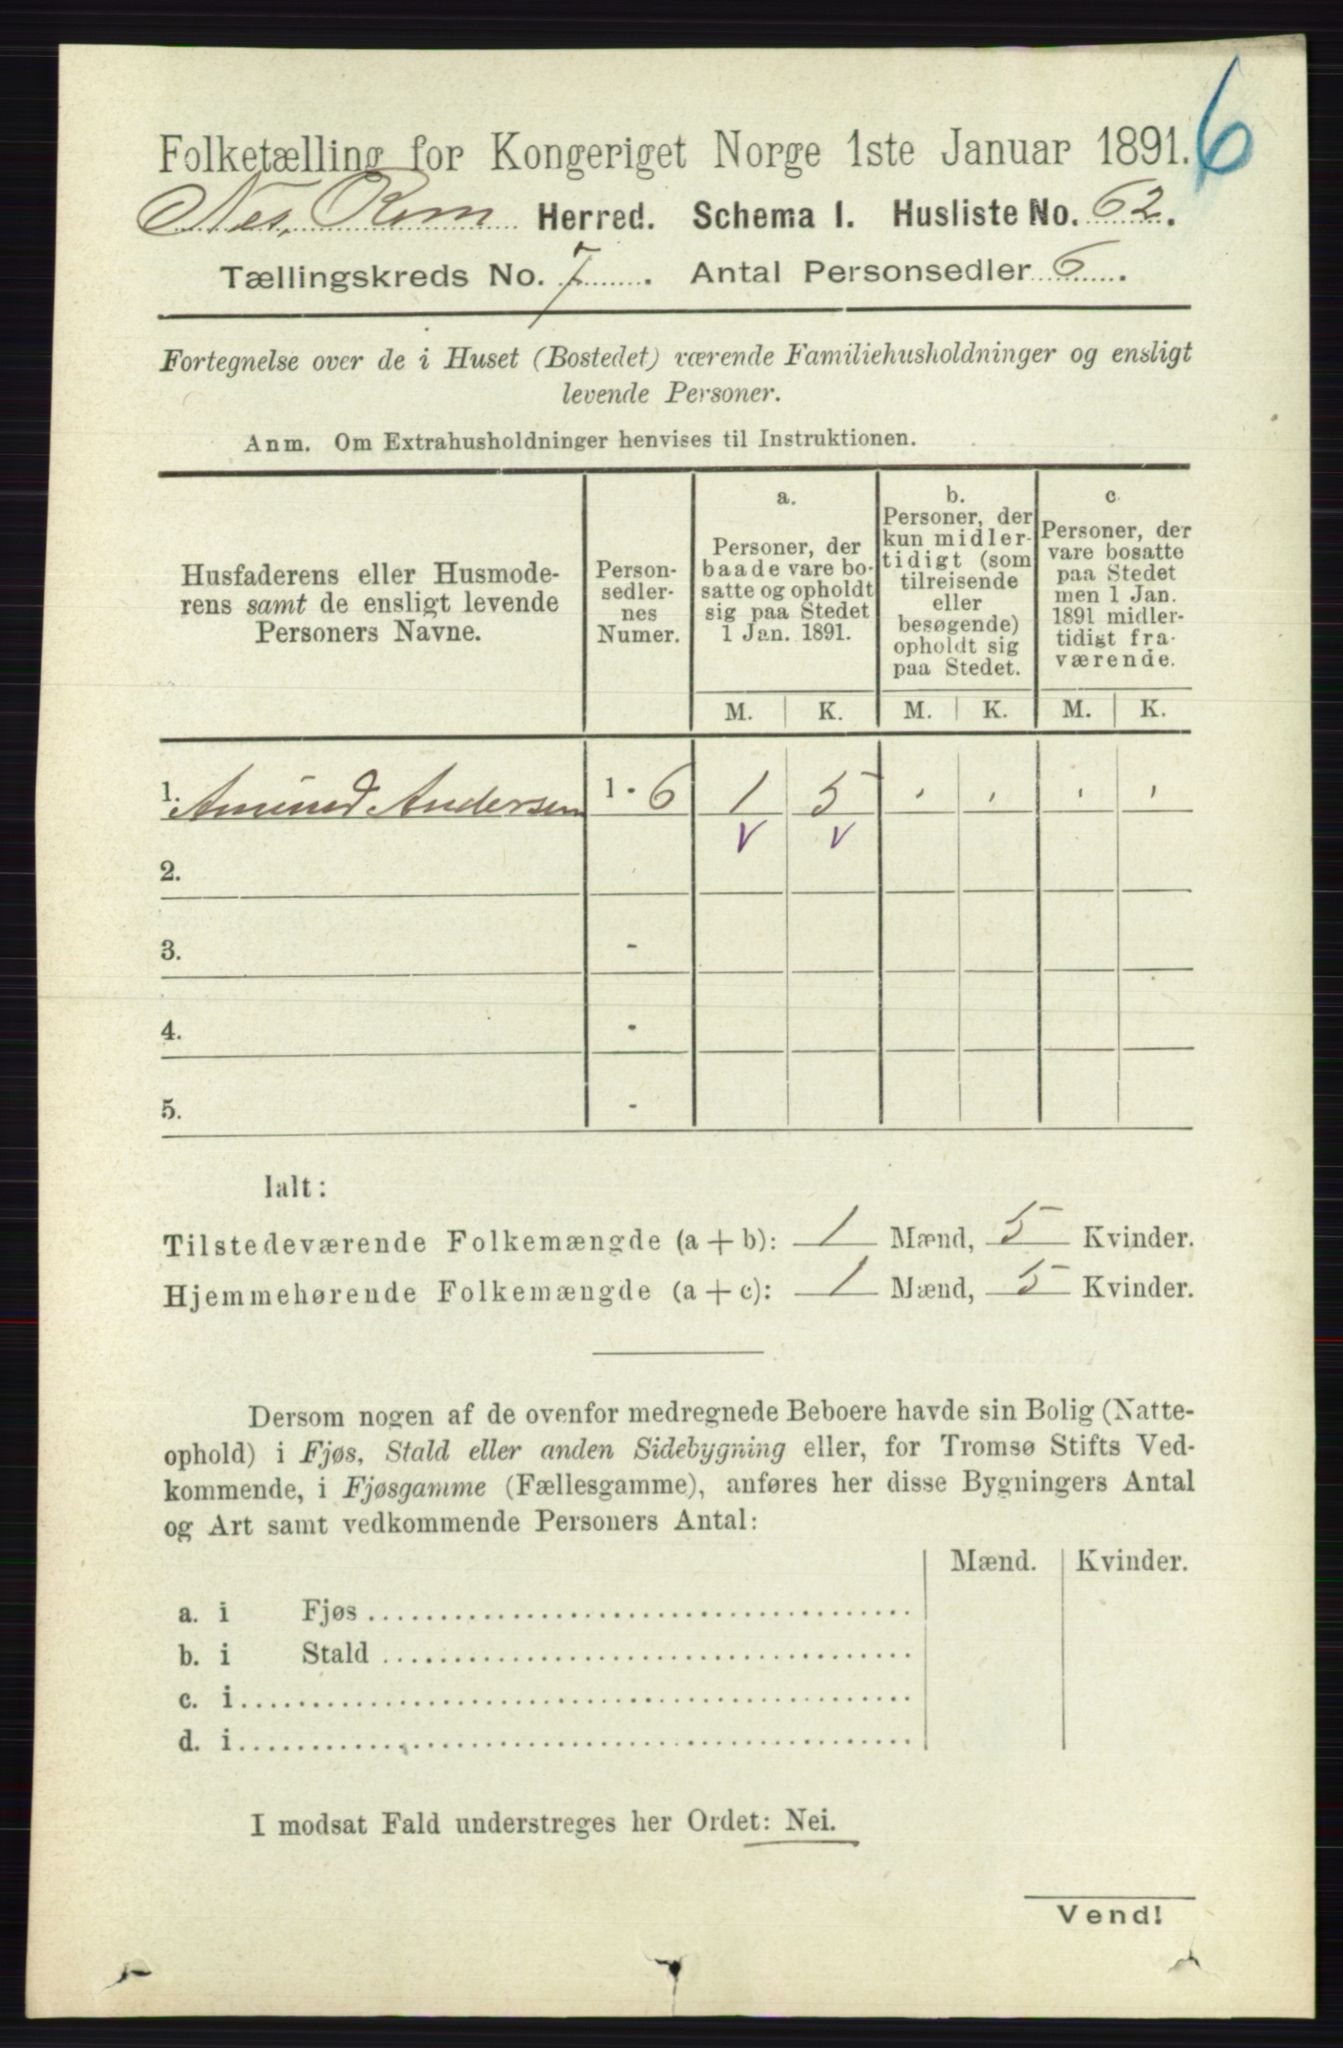 6
Folketælling for Kongeriget Norge 1ste Januar 1891.
Nes, Rom Herred. Schema 1. Husliste No. 62.
Tællingskreds No. 7. Antal Personsedler 6.
Fortegnelse over de i Huset (Bostedet) værende Familiehusholdninger og ensligt
levende Personer.
Anm. Om Extrahusholdninger henvises til Instruktionen.
Husfaderens eller Husmode-
rens samt de ensligt levende
Personers Navne.
Person-
sedler-
nes
Numer.
a.
Personer, der
baade vare bo-
satte og opholdt
sig paa Stedet
1 Jan. 1891.
b.
Personer, der
kun midler-
tidigt (som
tilreisende
eller
besøgende)
opholdt sig
paa Stedet.
c
Personer, der
vare bosatte
paa Stedet
men 1 Jan.
1891 midler-
tidigt fra-
værende.
M. K. M. K. M. K.
1. Amund Andersen 1 - 6 1 5
2.
3. -
4. -
5. -
Ialt:
Tilstedeværende Folkemængde (a + b): 1 Mænd, 5 Kvinder.
Hjemmehørende Folkemængde (a + c): 1 Mænd, 5 Kvinder.
Dersom nogen af de ovenfor medregnede Beboere havde sin Bolig (Natte-
ophold) i Fjøs, Stald eller anden Sidebygning eller, for Tromsø Stifts Ved-
kommende, i Fjøsgamme (Fællesgamme), anføres her disse Bygningers Antal
og Art samt vedkommende Personers Antal:
Mænd. Kvinder.
a. i Fjøs
b. i Stald
c. i
d. i
I modsat Fald understreges her Ordet: Nei.
Vend!